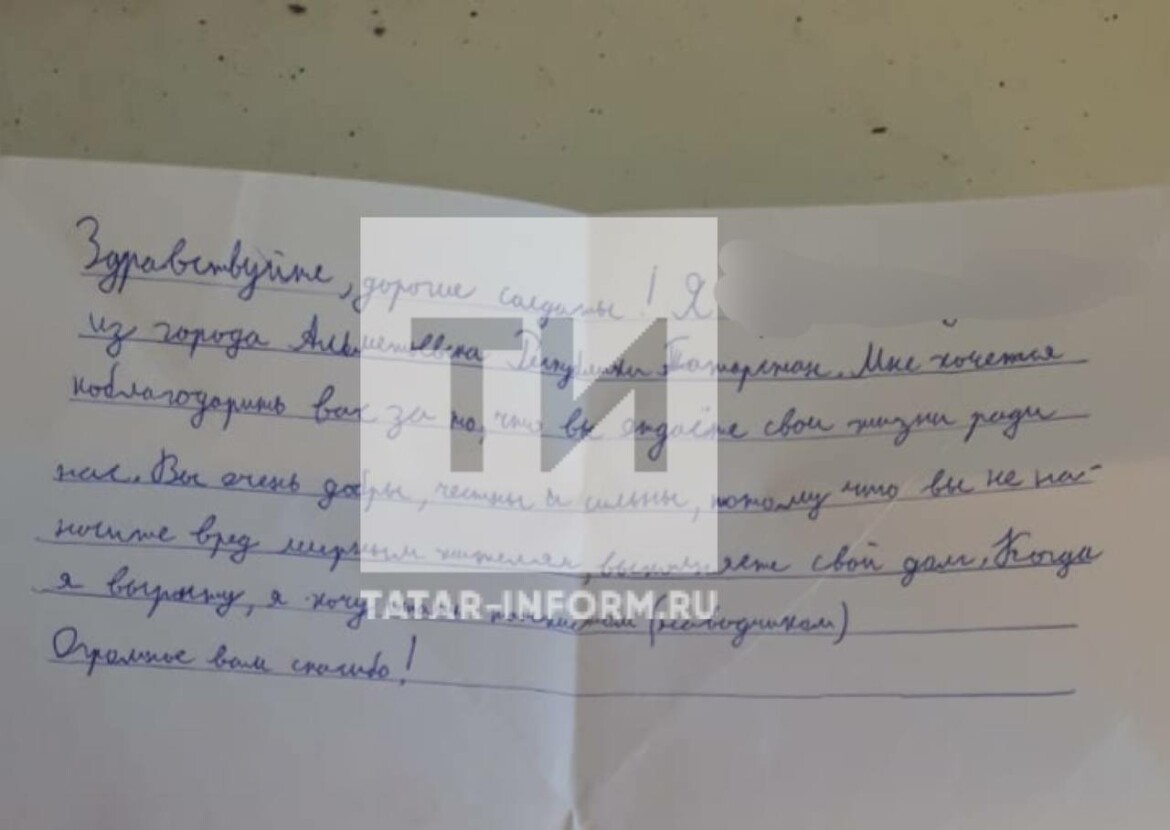 Здравствуйте, дорогие солдаты! Я
из города Альметьевска Республики Татарстан. Мне хочется
поблагодарить вас за то, что вы отдаёте свои жизни ради
нас. Вы очень добры, честны и сильны, потому что вы не на-
носите вред мирным жителям, выполняете свой долг. Когда
я вырасту, я хочу стать танкистом (наводчиком)
Огромное вам спасибо!
ТИ
TATAR-INFORM.RU